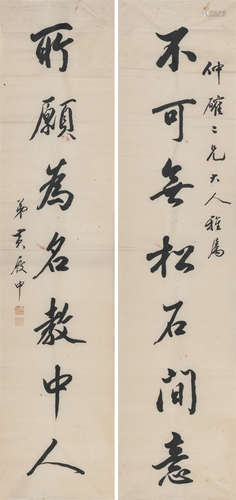 仲確二兄大人雅属
不可無松石間意
所願為名教中人
弟黄殿中